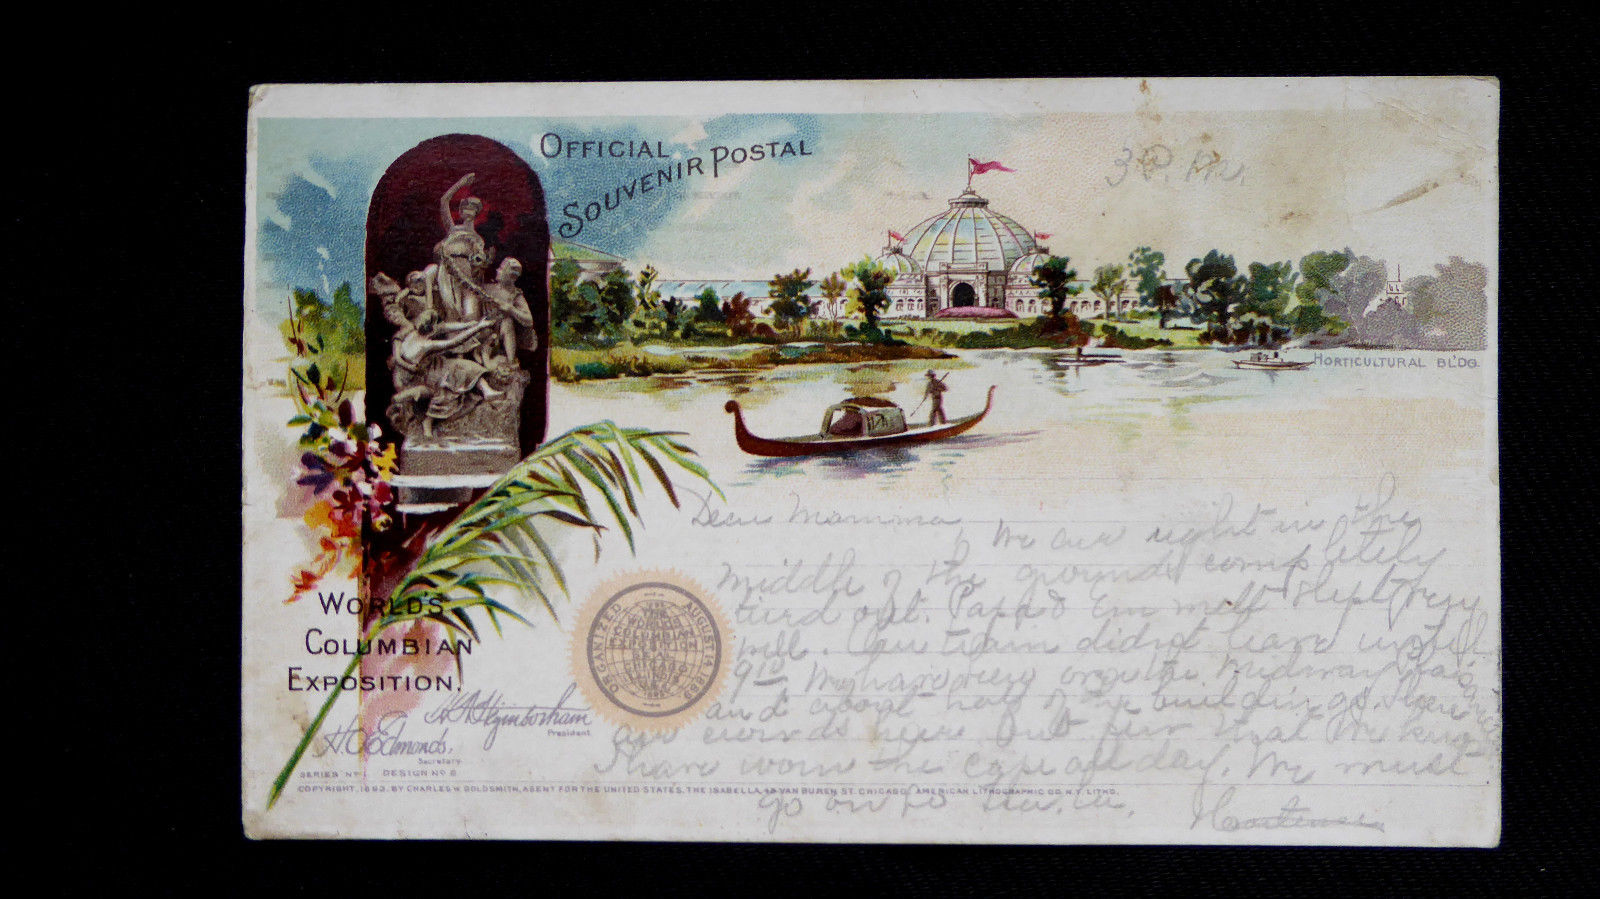 OFFICIAL
SOUVENIR POSTAL
3 P. M.
HORTICULTURAL BL'DG.
Dear Mamma,
We are right in the
middle of the grounds completely
tired out. Papa & Em well. Slept very
well. Our train didn't leave until
9
and about half of the buildings. There
are crowds here but few that we know
I have worn the cape all day. We must
go on to
Hortense
WORLD'S
COLUMBIAN
EXPOSITION.
ORGANIZED AUGUST 14 1889
THE WORLD'S COLUMBIAN EXPOSITION
President
H.O. Edmonds.
Secretary
SERIES Nº 1 DESIGN Nº 8
COPYRIGHT, 1893, BY CHARLES W. GOLDSMITH, AGENT FOR THE UNITED STATES, THE ISABELLA, VAN BUREN ST. CHICAGO. AMERICAN LITHOGRAPHIC CO. N.Y. LITHO.